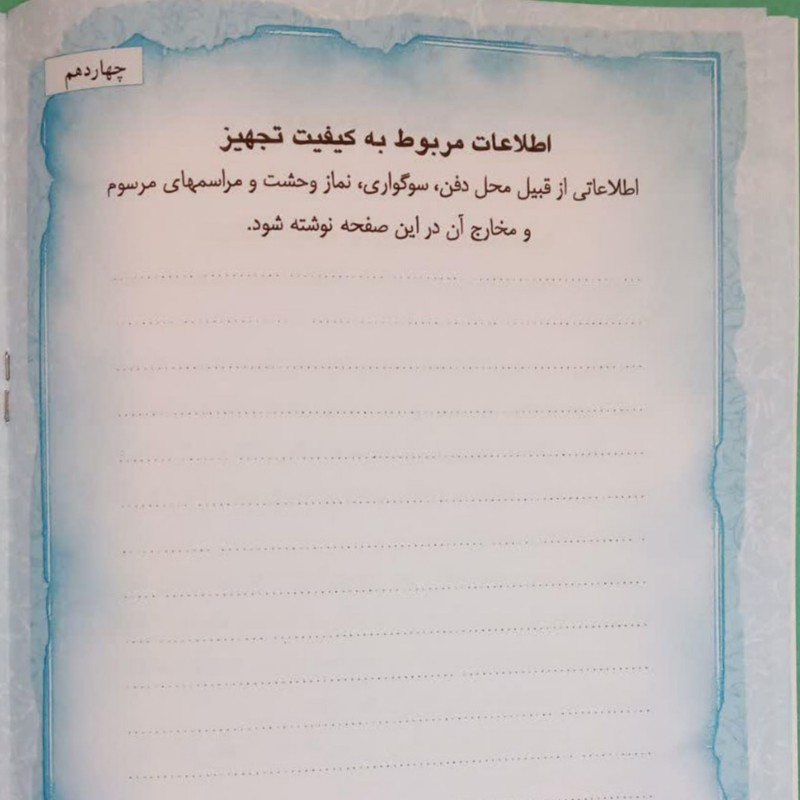 چهاردهم
اطلاعات مربوط به کیفیت تجهیز
اطلاعاتی از قبیل محل دفن، سوگواری، نماز وحشت و مراسمهای مرسوم
و مخارج آن در این صفحه نوشته شود.